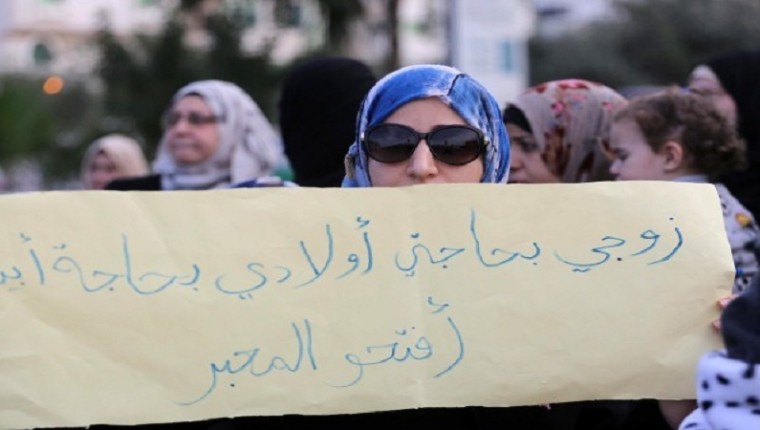 زوجي بحاجتي أولادي بحاجة
أفتحو المعبر